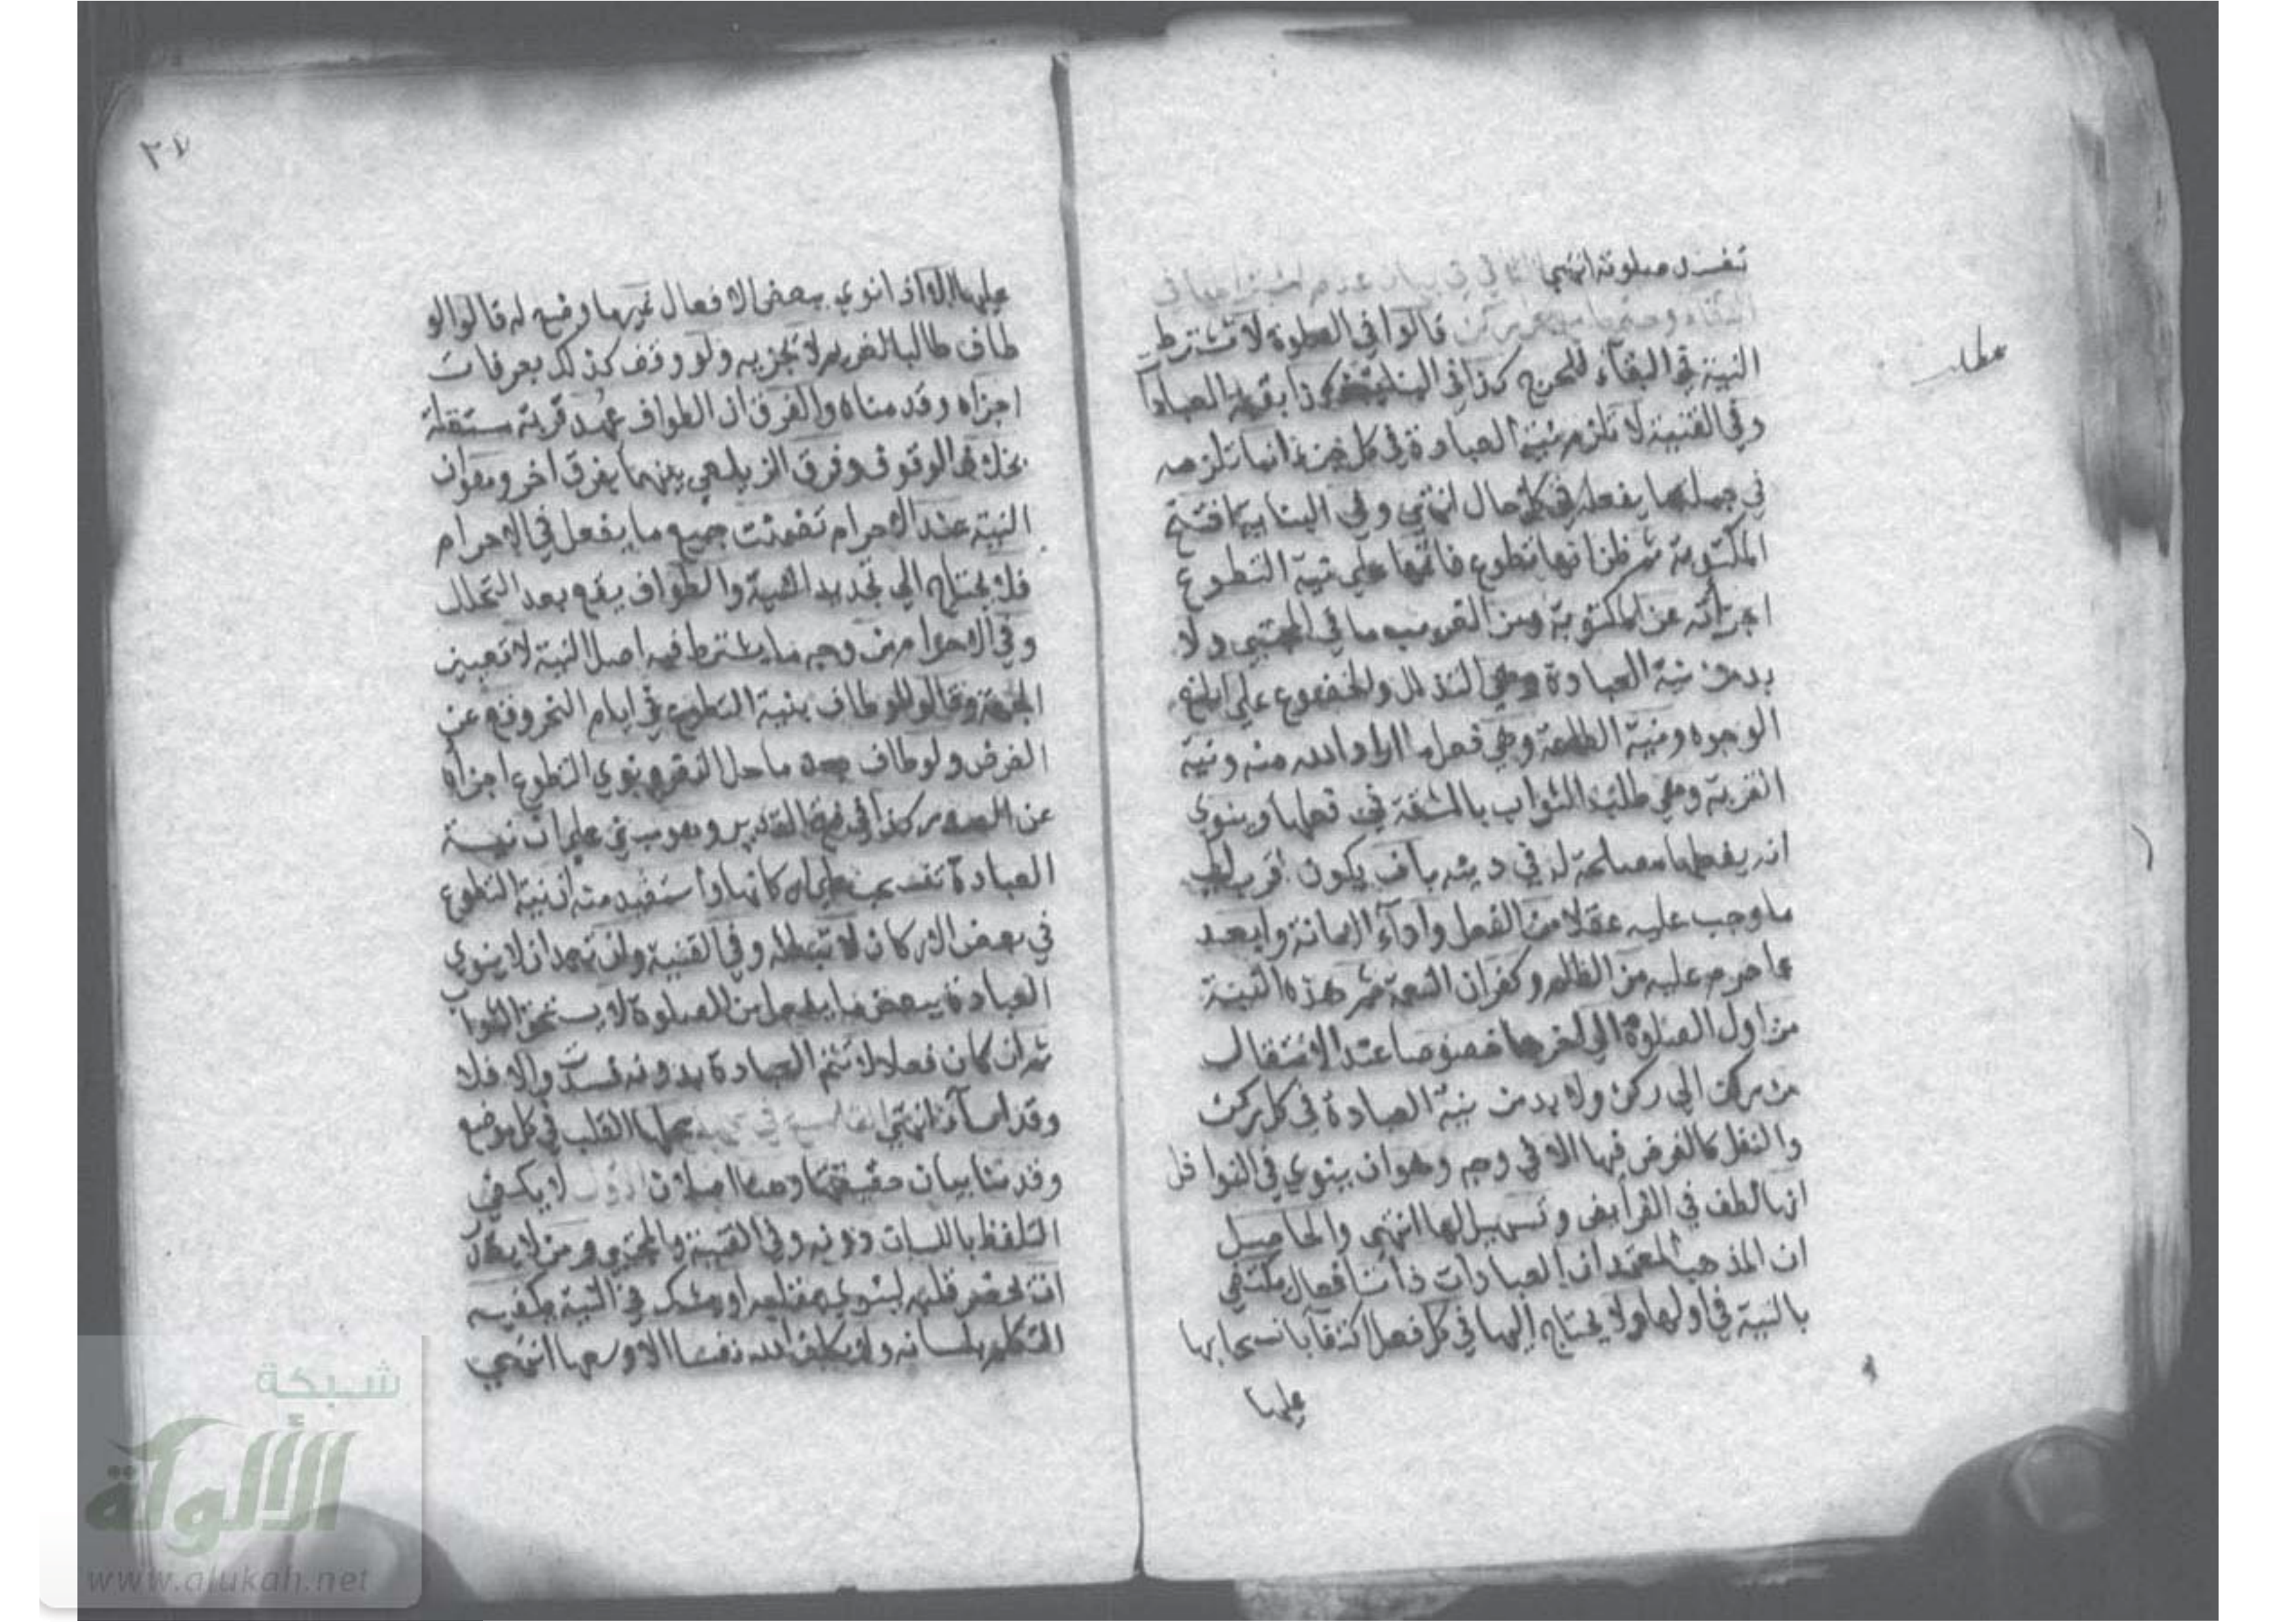 تفسد صلوته انتهى الثاني في بيان عدم اشتراطها في
البقاء وحكمها مع كل ركن قالوا في الصلوة لا تشترط
النية في البقاء للحرج كذا في البناية وكذا بقية العبادات
وفي القنية لا تلزم نية العبادة في كل جزء انما تلزمه
في جملة ما يفعله في كل حال انتهى وفي البناية افتتح
المكتوبة ثم ظن انها تطوع فاتمها على نية التطوع
اجزأته عن المكتوبة ومن الغريب ما في المجتبى ولا
بد من نية العبادة وهي التذلل والخضوع على ابلغ
الوجوه ونية الطاعة وهي فعل ما اراد الله منه ونية
القربة وهي طلب الثواب بالمشقة في فعلها وينوي
انه يفعلها مصلحة له في دينه بان يكون اقرب الى
ما وجب عليه عقلا من الفعل واداء الامانة وابعد
عما حرم عليه من الظلم وكفران النعمة ثم هذه النية
من اول الصلوة الى اخرها خصوصا عند الانتقال
من ركن الى ركن ولا بد من نية العبادة في كل ركن
والنفل كالفرض فيها الا في وجه وهو ان ينوي في النوافل
انها لطف في الفرايض وتسهيل لها انتهى والحاصل
ان المذهب المعتمد ان العبادات ذات افعال يكتفي
بالنية في اولها ولا يحتاج اليها في كل فعل اكتفآ بانسحابها
عليها
مطلب
٢٧
عليها الا اذا نوى ببعض الافعال غير ما وضع له قالوا لو
طاف طالبا لغريم لا يجزيه ولو وقف كذلك بعرفات
اجزاه وقدمناه والفرق ان الطواف عهد قربة مستقلة
بخلاف الوقوف وفرق الزيلعي بينهما بفرق اخر وهو ان
النية عند الاحرام تضمنت جميع ما يفعل في الاحرام
فلا يحتاج الى تجديد النية والطواف يقع بعد التحلل
وفي الاحرام من وجه فا يشترط فيه اصل النية لا تعيين
الجهة وقالوا لو طاف بنية التطوع في ايام النحر وقع عن
الفرض ولو طاف بعد ما حل النفر ونوى التطوع اجزاه
عن الصدر كذا في فتح القدير وهو مبني على ان نية
العبادة تنسحب على اركانها واستفيد منه ان نية التطوع
في بعض الاركان لا تبطله وفي القنية وان تعمد ان لا ينوي
العبادة ببعض ما يفعل من الصلوة لا يستحق الثواب
ثم ان كان فعلا لا تتم العبادة بدونه فسدت والا فلا
وقد اسآء انتهى التاسع في محلها محلها القلب في كل موضع
وقدمنا بيان حقيقتها وهنا اصلان الاول لا يكفي
التلفظ باللسان دونه وفي القنية والمجتبى ومن لا يقدر
ان يحضر قلبه لينوي بقلبه او يشك في النية يكفيه
التكلم بلسانه ولا يكلف الله نفسا الا وسعها انتهى
شبكة
الألوكة
www.alukah.net